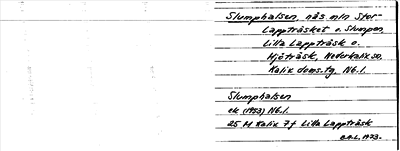 Slumphalsen, näs mln Stor-
Lappträsket o. Slumpen,
Lilla Lappträsk o.
Hjöträsk, Nederkalix sn,
Kalix doms.tg, Nb.l.
Slumphalsen
ek (1953) Nb.l.
25 M Kalix 7f Lilla Lappträsk
1973.